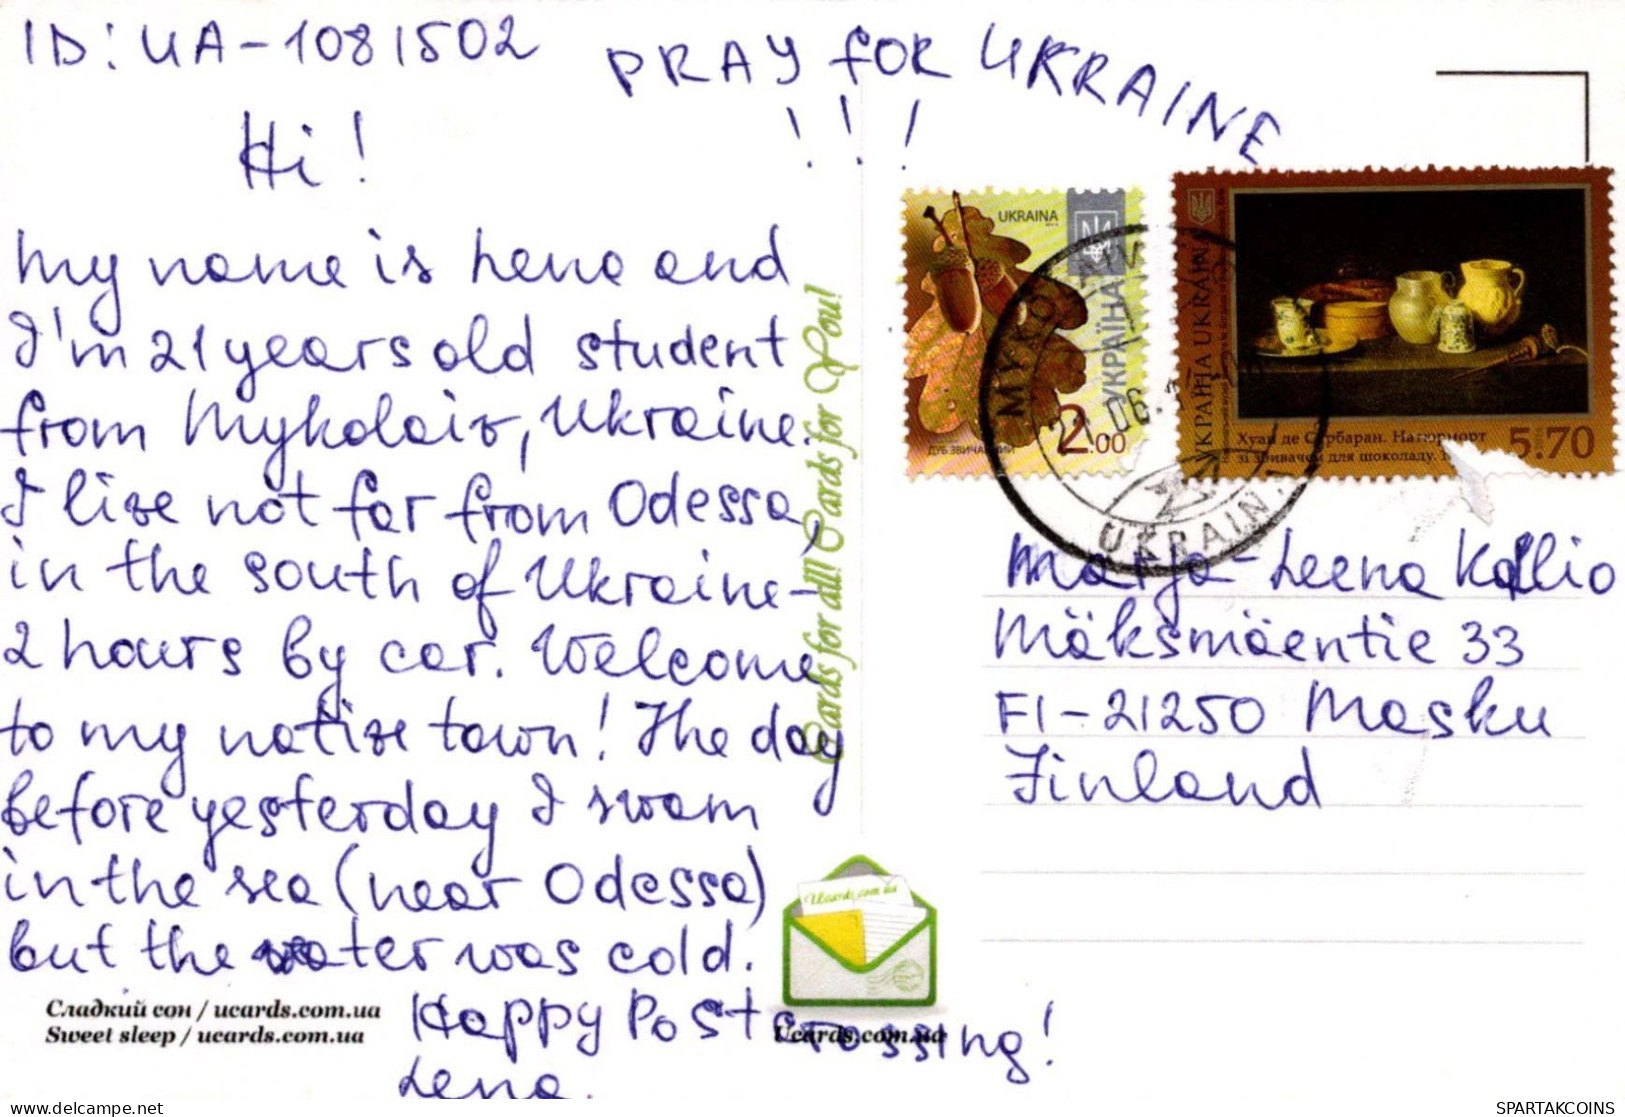 ID: UA-1081502
PRAY FOR UKRAINE
!!!
Hi!
My name is Lena and
I'm 21 years old student
from Mykolaiv, Ukraine.
I live not far from Odessa,
in the south of Ukraine-
2 hours by car. Welcome
to my native town! The day
before yesterday I swam
in the sea (near Odessa)
but the water was cold.
Happy Postcrossing!
Lena.
Сладкий сон / ucards.com.ua
Sweet sleep / ucards.com.ua
Cards for all! Cards for You!
Ucards.com.ua
Ucards.com.ua
UKRAINA
УКРАЇНА
ДУБ ЗВИЧАЙНИЙ
2.00
УКРАЇНА UKRAINA
Хуан де Сурбаран. Натюрморт
зі збивачем для шоколаду.
5.70
UKRAIN
Marja-Leena Kallio
Mäksmäentie 33
FI-21250 Masku
Finland
SPARTAKCOINS
delcampe.net